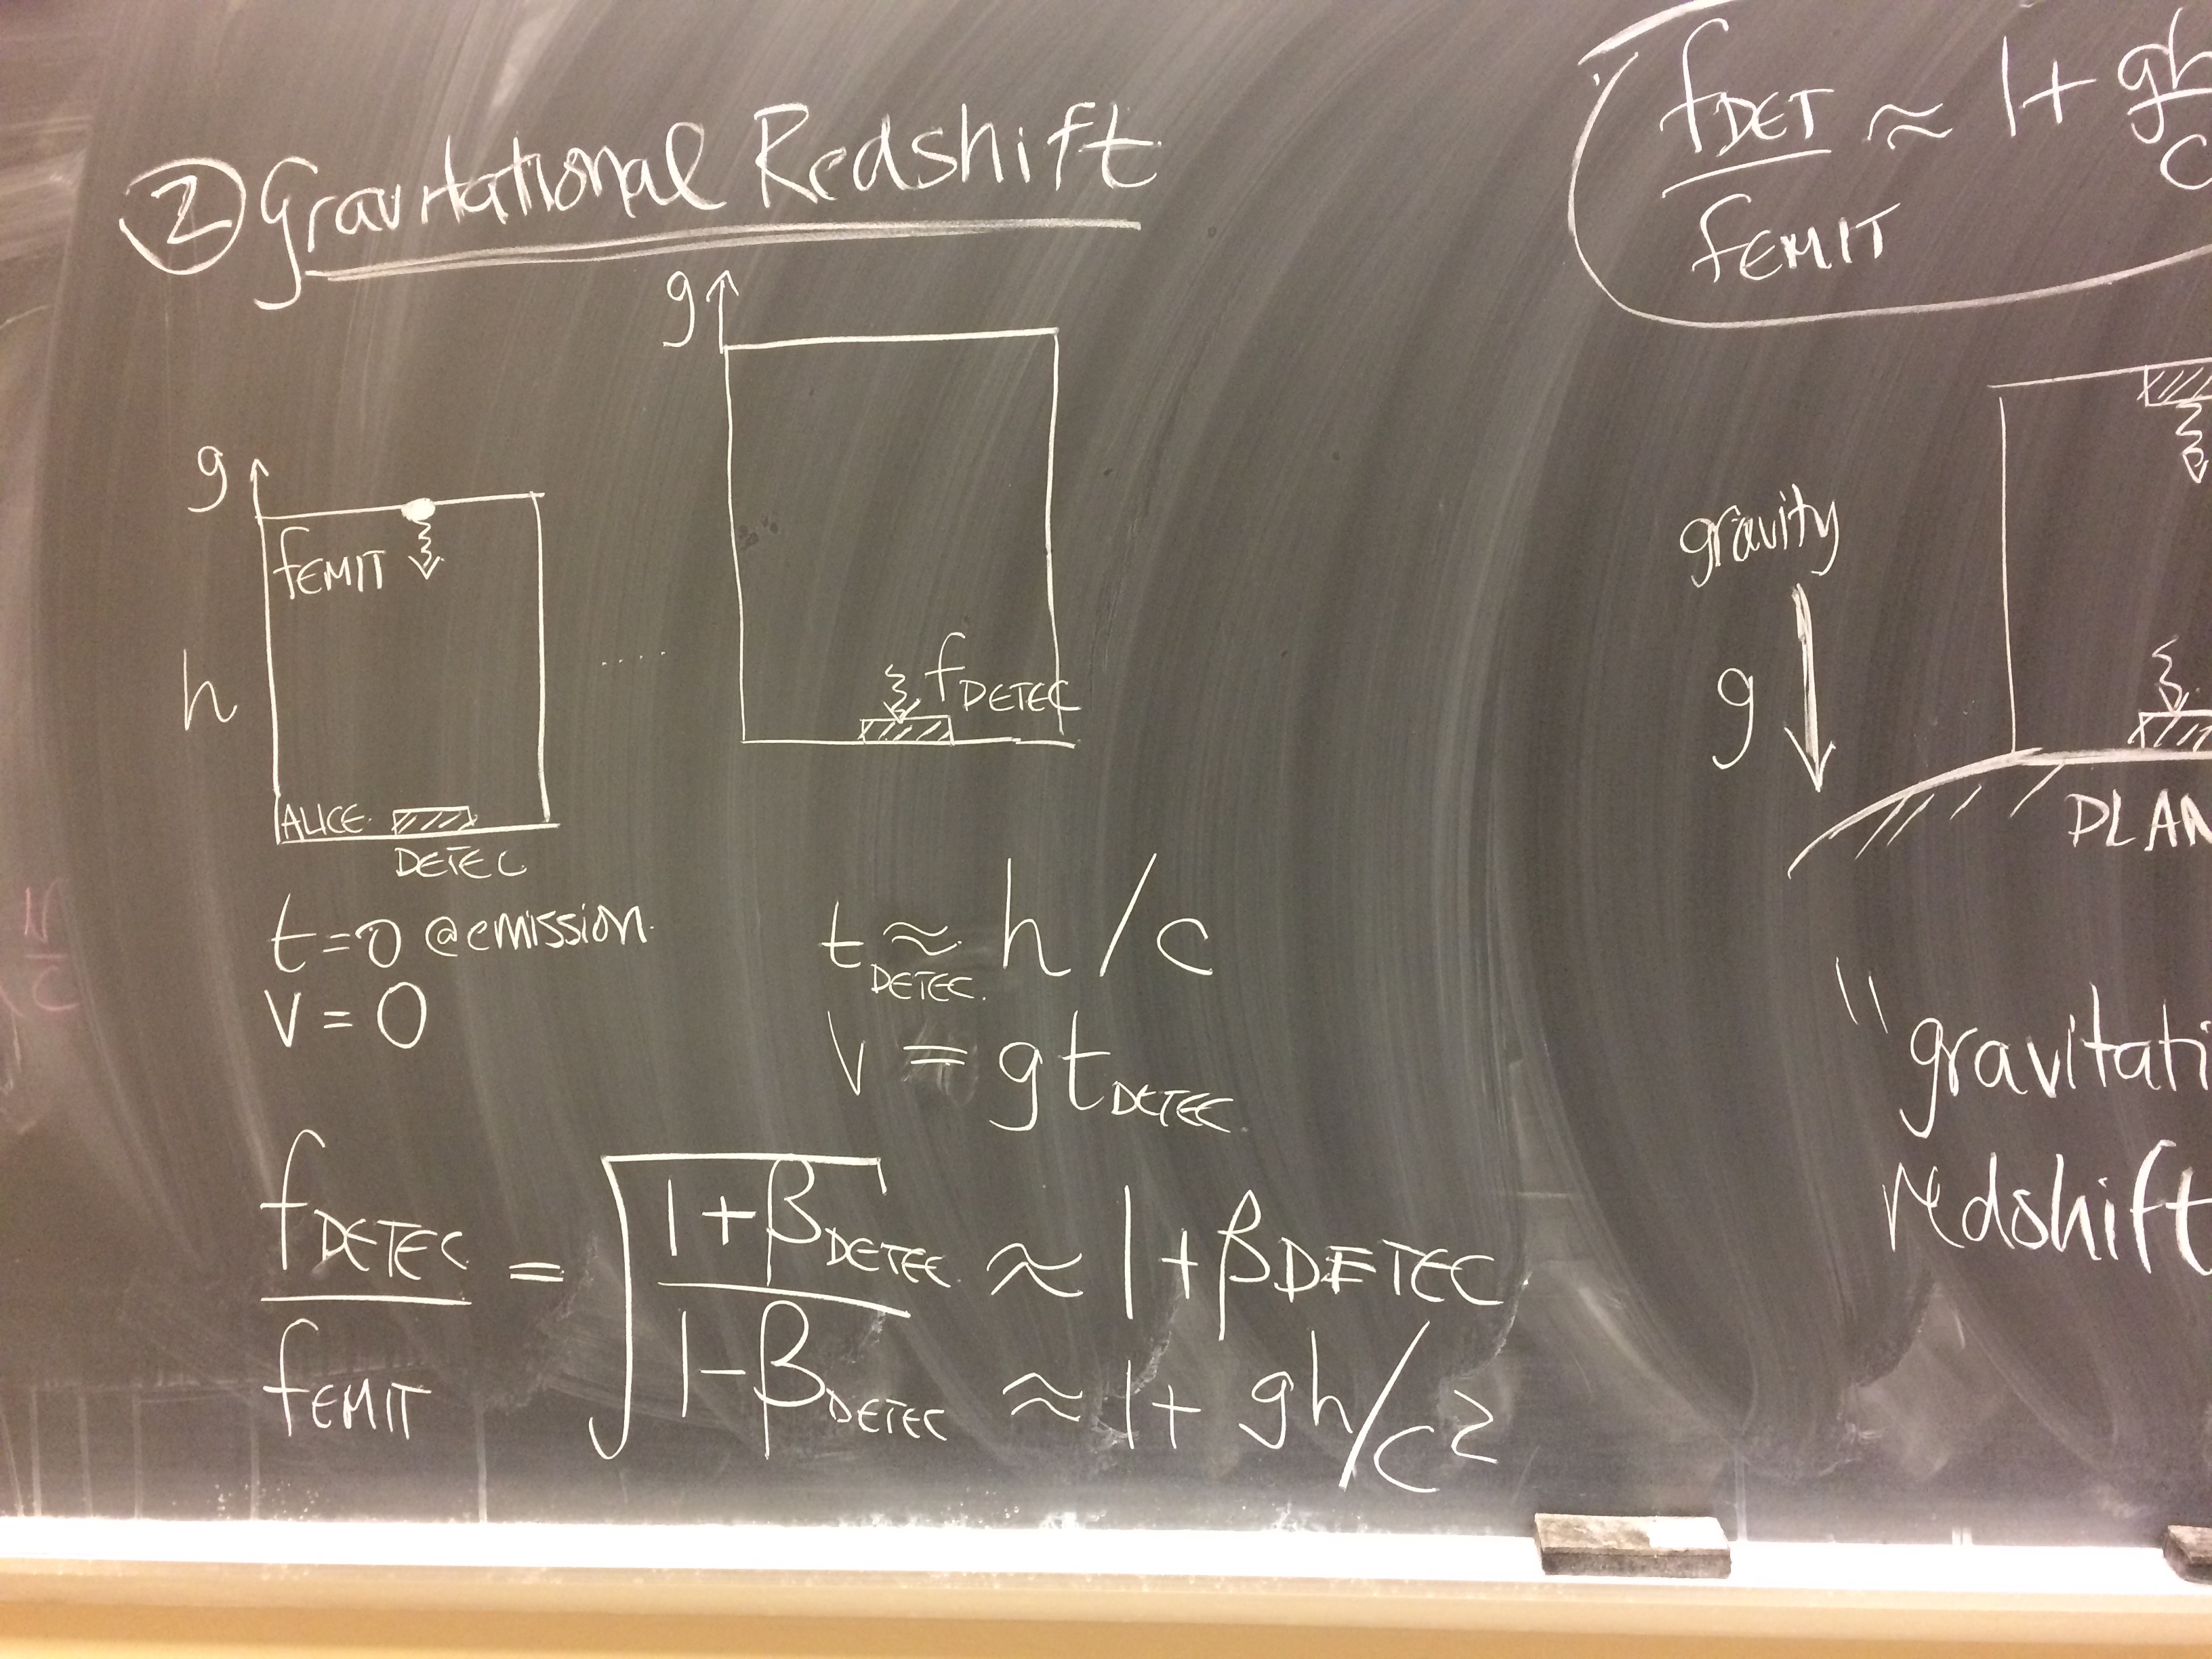 ② Gravitational Redshift
g
g
fEMIT
h
fDETEC
ALICE
DETEC
t=0 @emission
v=0
t DETEC ≈ h/c
v = gtDETEC
fDETEC / fEMIT = √((1+βDETEC)/(1-βDETEC)) ≈ 1+βDETEC
≈ 1+ gh/c2
fDET / fEMIT ≈ 1+ gh / c
gravity
g
PLAN
"gravitati
redshift